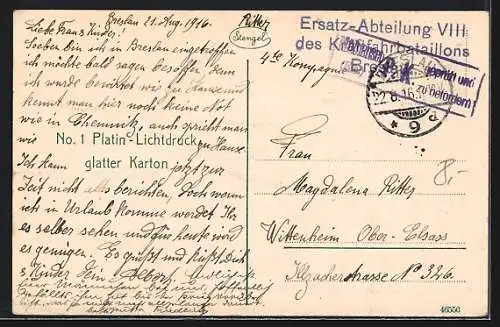 Breslau 21. Aug. 1916.
Liebe Frau & Kinder!
Soeben bin ich in Breslau eingetroffen
ich möchte bald sagen besoffen, denn
ich wurde bewirtet wie zu Hause und
kennt man hier noch keine Not
wie in Chemnitz, auch spricht man
wie zu Hause
Ich kann jetzt zur
Zeit nicht alles berichten, Doch wenn
ich in Urlaub komme werdet Ihr
es selber sehen und für heute wird
es genügen. Es grüßt und küßt Dich
& Kinder Dein
No. 1 Platin-Lichtdruck
glatter Karton
Ritter
Stengel
Ersatz-Abteilung VIII
des Kraftfahrbataillons
Breslau
4te Kompagnie
geprüft und
zu befördern
BRESLAU
22.8.16.
* 9 d
Frau
Magdalena Ritter
Wittenheim Ober-Elsass
Illzacherstrasse No 326.
8,-
46556